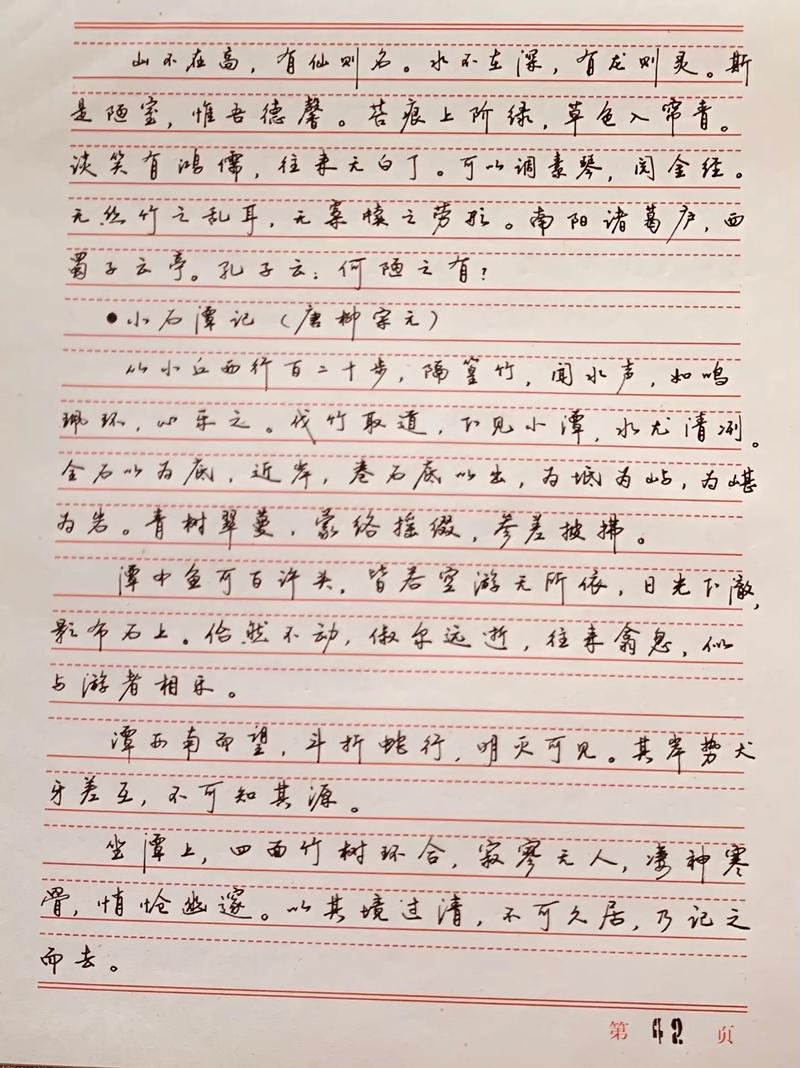 山不在高，有仙则名。水不在深，有龙则灵。斯
是陋室，惟吾德馨。苔痕上阶绿，草色入帘青。
谈笑有鸿儒，往来无白丁。可以调素琴，阅金经。
无丝竹之乱耳，无案牍之劳形。南阳诸葛庐，西
蜀子云亭。孔子云：何陋之有？
●小石潭记（唐柳宗元）
从小丘西行百二十步，隔篁竹，闻水声，如鸣
珮环，心乐之。伐竹取道，下见小潭，水尤清冽。
全石以为底，近岸，卷石底以出，为坻为屿，为嵁
为岩。青树翠蔓，蒙络摇缀，参差披拂。
潭中鱼可百许头，皆若空游无所依，日光下澈，
影布石上。佁然不动，俶尔远逝，往来翕忽，似
与游者相乐。
潭西南而望，斗折蛇行，明灭可见。其岸势犬
牙差互，不可知其源。
坐潭上，四面竹树环合，寂寥无人，凄神寒
骨，悄怆幽邃。以其境过清，不可久居，乃记之
而去。
第 42 页